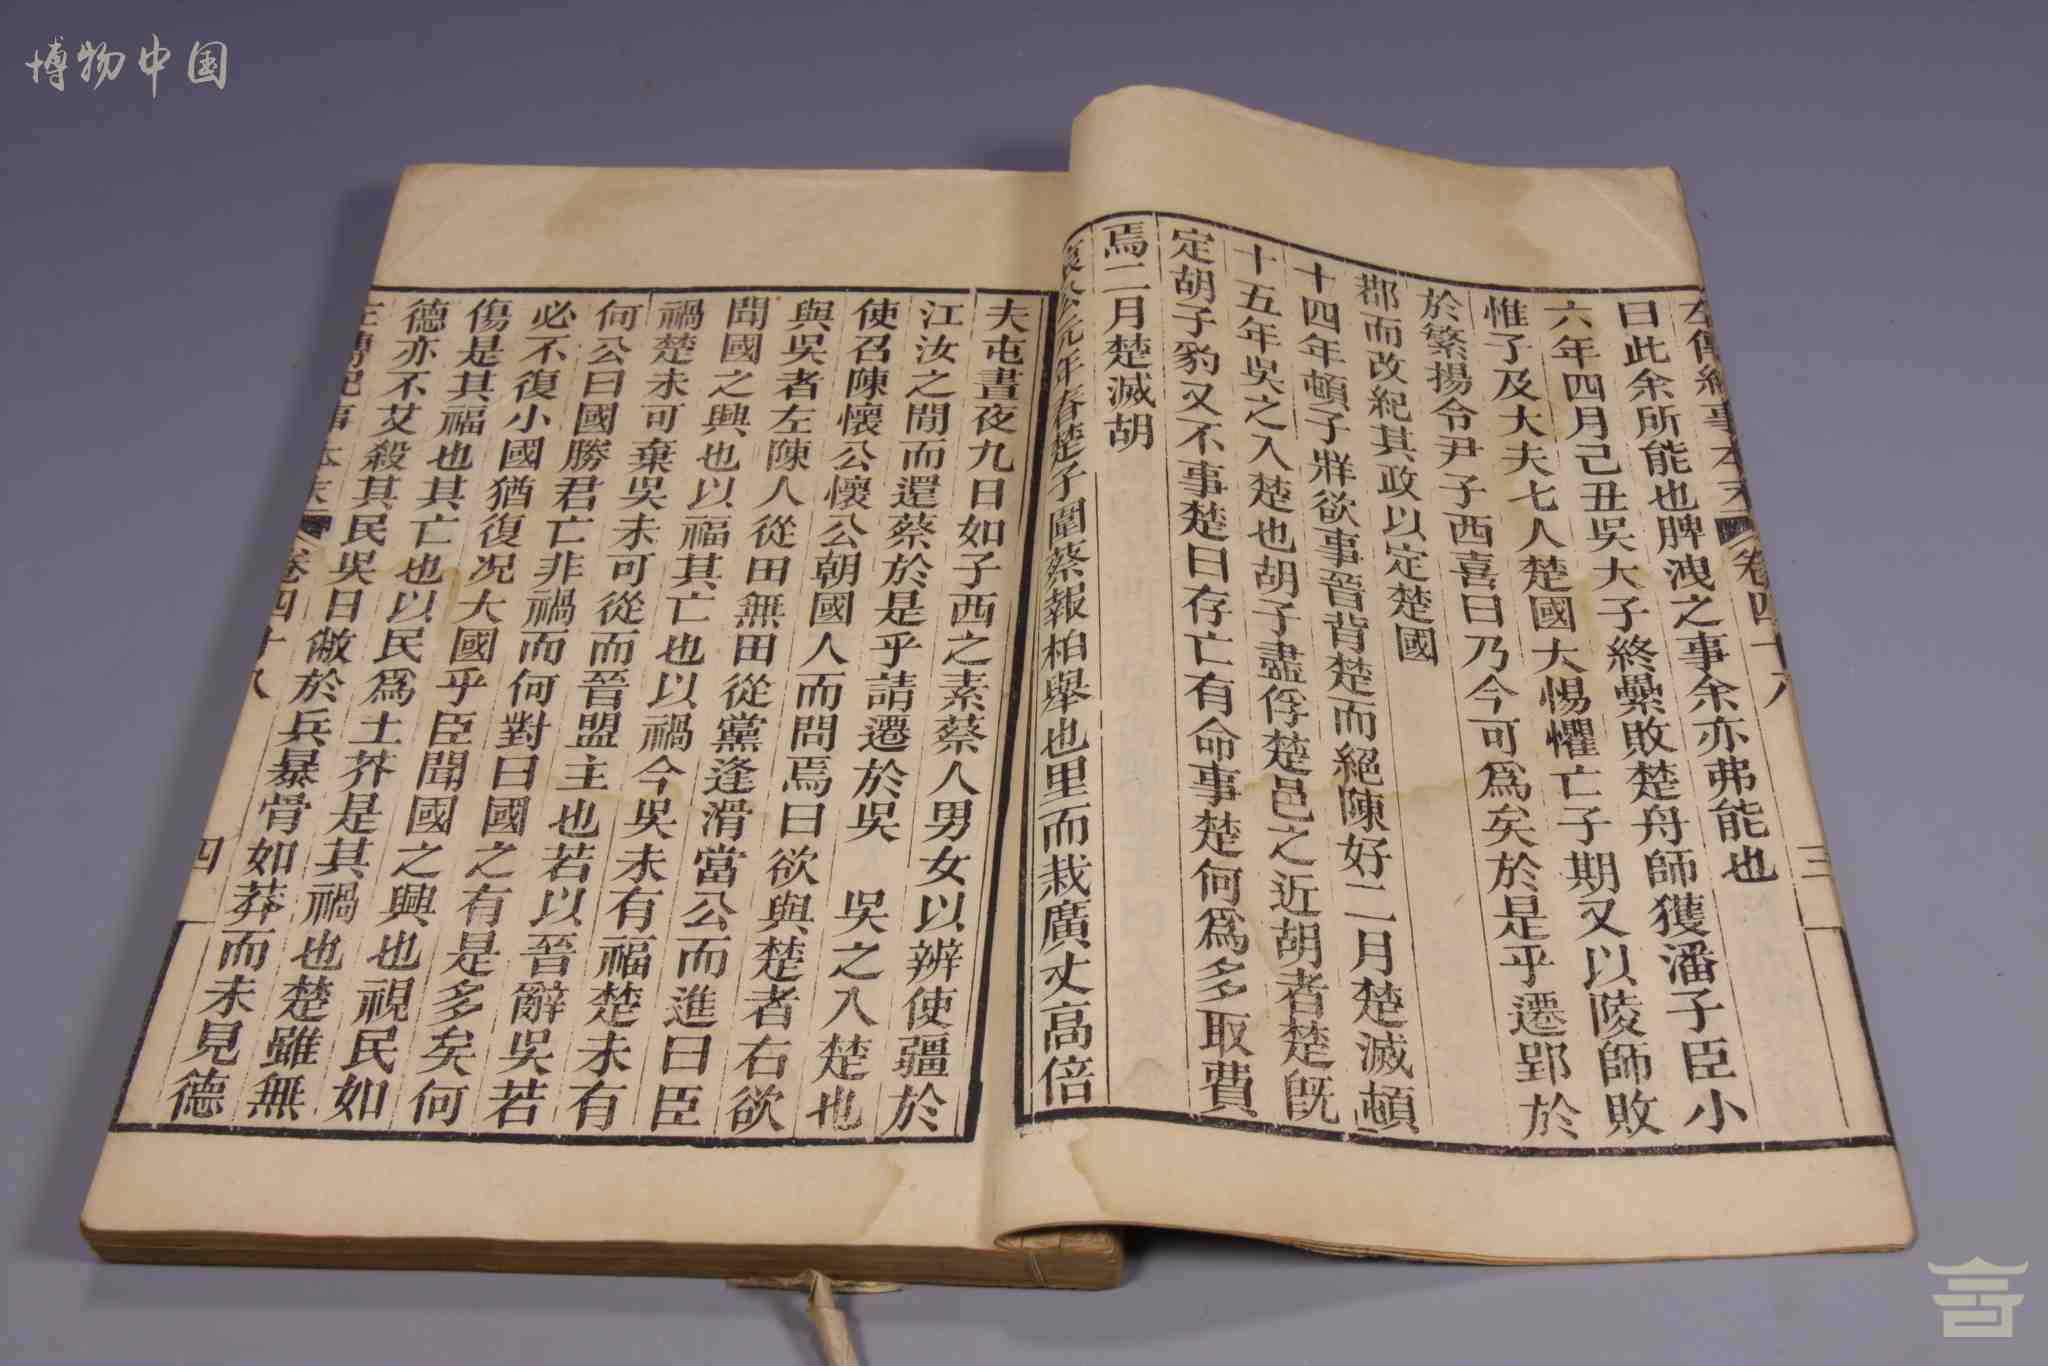 博物中国
左傳紀事本末 卷四十八 三
曰此余所能也脾洩之事余亦弗能也
六年四月己丑吳大子終纍敗楚舟師獲潘子臣小
惟子及大夫七人楚國大惕懼亡子期又以陵師敗
於繁揚令尹子西喜曰乃今可爲矣於是乎遷郢於
鄀而改紀其政以定楚國
十四年頓子牂欲事晉背楚而絕陳好二月楚滅頓
十五年吳之入楚也胡子盡俘楚邑之近胡者楚旣
定胡子豹又不事楚曰存亡有命事楚何爲多取費
焉二月楚滅胡
哀公元年春楚子圍蔡報柏舉也里而栽廣丈高倍
夫屯晝夜九日如子西之素蔡人男女以辨使疆於
江汝之間而還蔡於是乎請遷於吳 吳之入楚也
使召陳懷公懷公朝國人而問焉曰欲與楚者右欲
與吳者左陳人從田無田從黨逢滑當公而進曰臣
聞國之興也以福其亡也以禍今吳未有福楚未有
禍楚未可棄吳未可從而晉盟主也若以晉辭吳若
何公曰國勝君亡非禍而何對曰國之有是多矣何
必不復小國猶復况大國乎臣聞國之興也視民如
傷是其福也其亡也以民爲土芥是其禍也楚雖無
德亦不艾殺其民吳日敝於兵暴骨如莽而未見德
左傳紀事本末 卷四十八 四